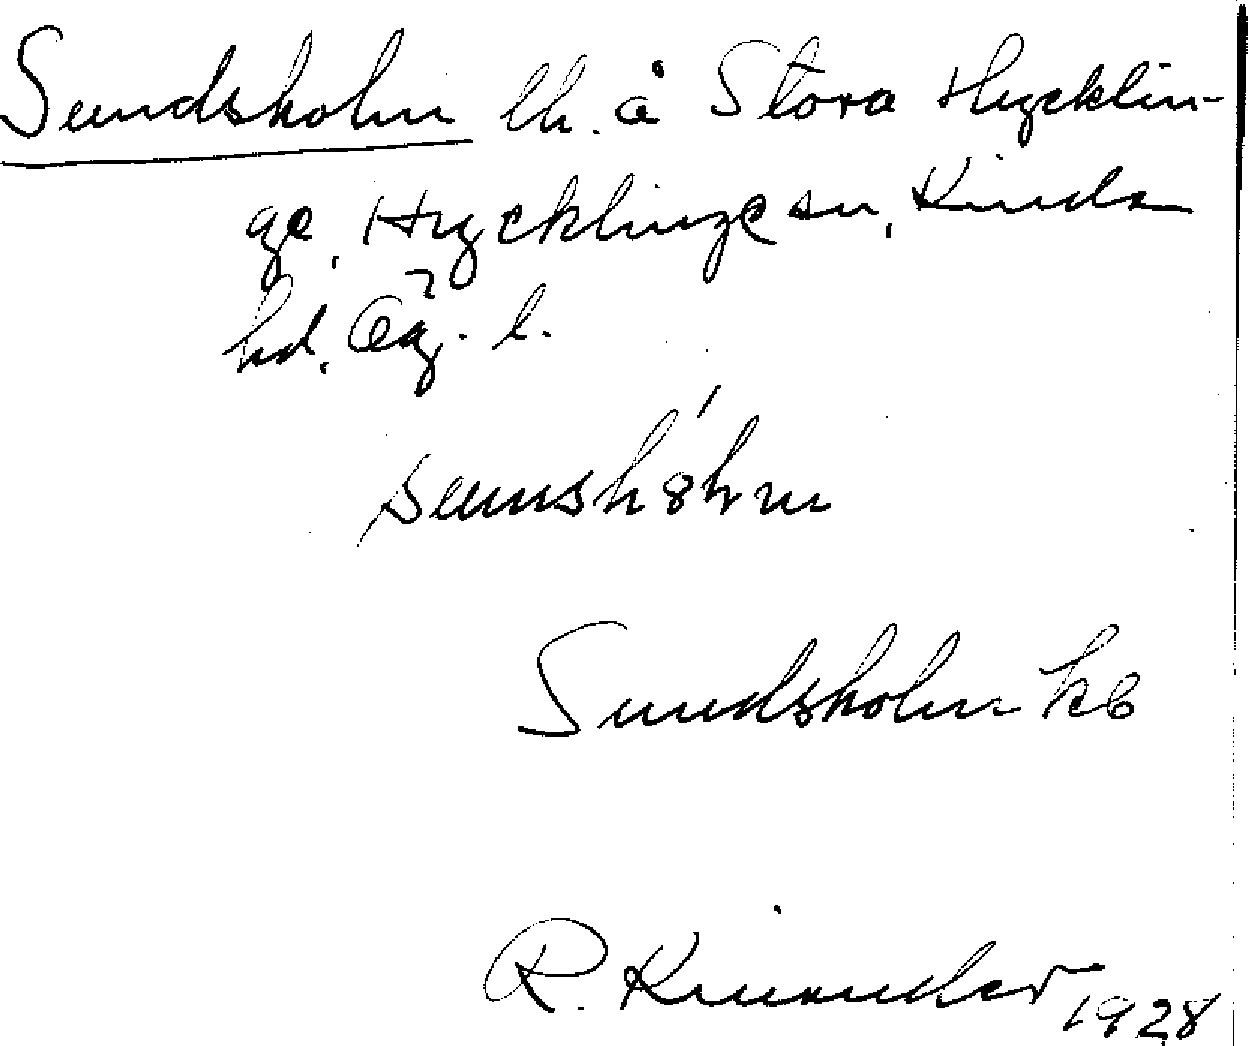 Sundsholm lh. å Stora Hycklin-
ge, Hycklinge sn, Kinda
hd, Ög. l.
Sundsholm kb
R. Kinander 1928